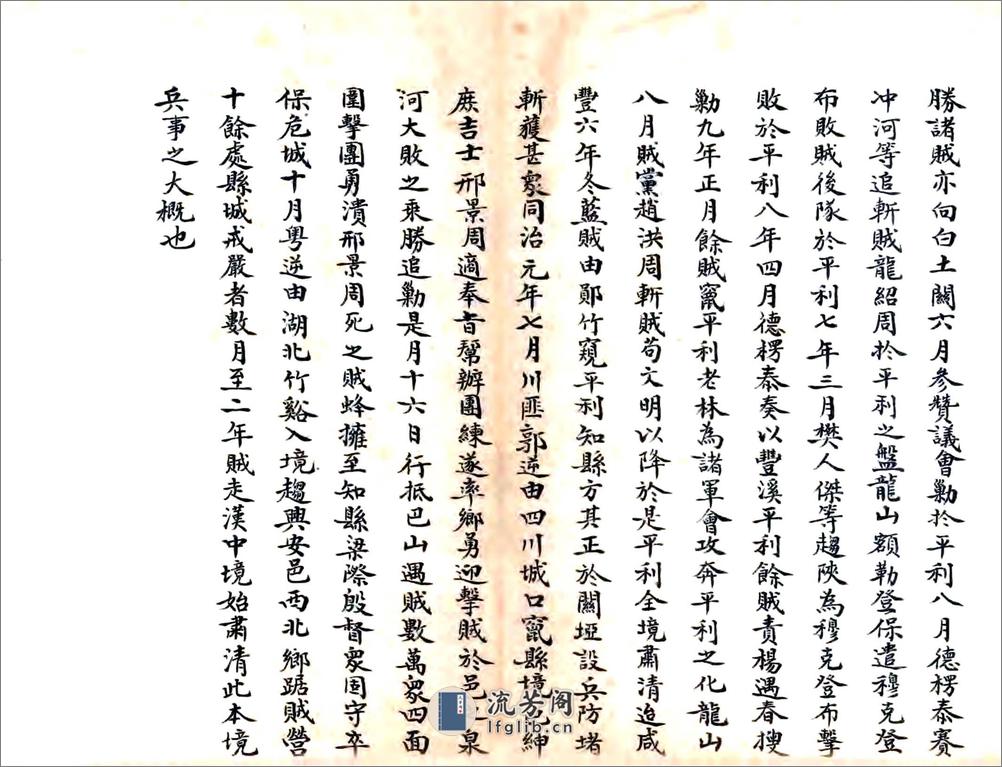 勝諸賊亦向白土關六月參贊議會勦於平利八月德楞泰賽
冲河等追斬賊龍紹周於平利之盤龍山額勒登保遣穆克登
布敗賊後隊於平利七年三月樊人傑等趨陝為穆克登布擊
敗於平利八年四月德楞泰奏以豐溪平利餘賊責楊遇春搜
勦九年正月餘賊竄平利老林為諸軍會攻奔平利之化龍山
八月賊黨趙洪周斬賊苟文明以降於是平利全境肅清迨咸
豐六年冬藍賊由鄖竹窺平利知縣方其正於關埡設兵防堵
斬獲甚眾同治元年七月川匪郭逆由四川城口竄縣境邑紳
庶吉士邢景周適奉旨幫辦團練遂率鄉勇迎擊賊於邑 泉
河大敗之乘勝追勦是月十六日行抵巴山遇賊數萬眾四面
圍擊團勇潰邢景周死之賊蜂擁至知縣梁際殷督眾固守卒
保危城十月粵逆由湖北竹谿入境趨興安邑西北鄉踞賊營
十餘處縣城戒嚴者數月至二年賊走漢中境始肅清此本境
兵事之大概也
流芳阁
lfglib.cn